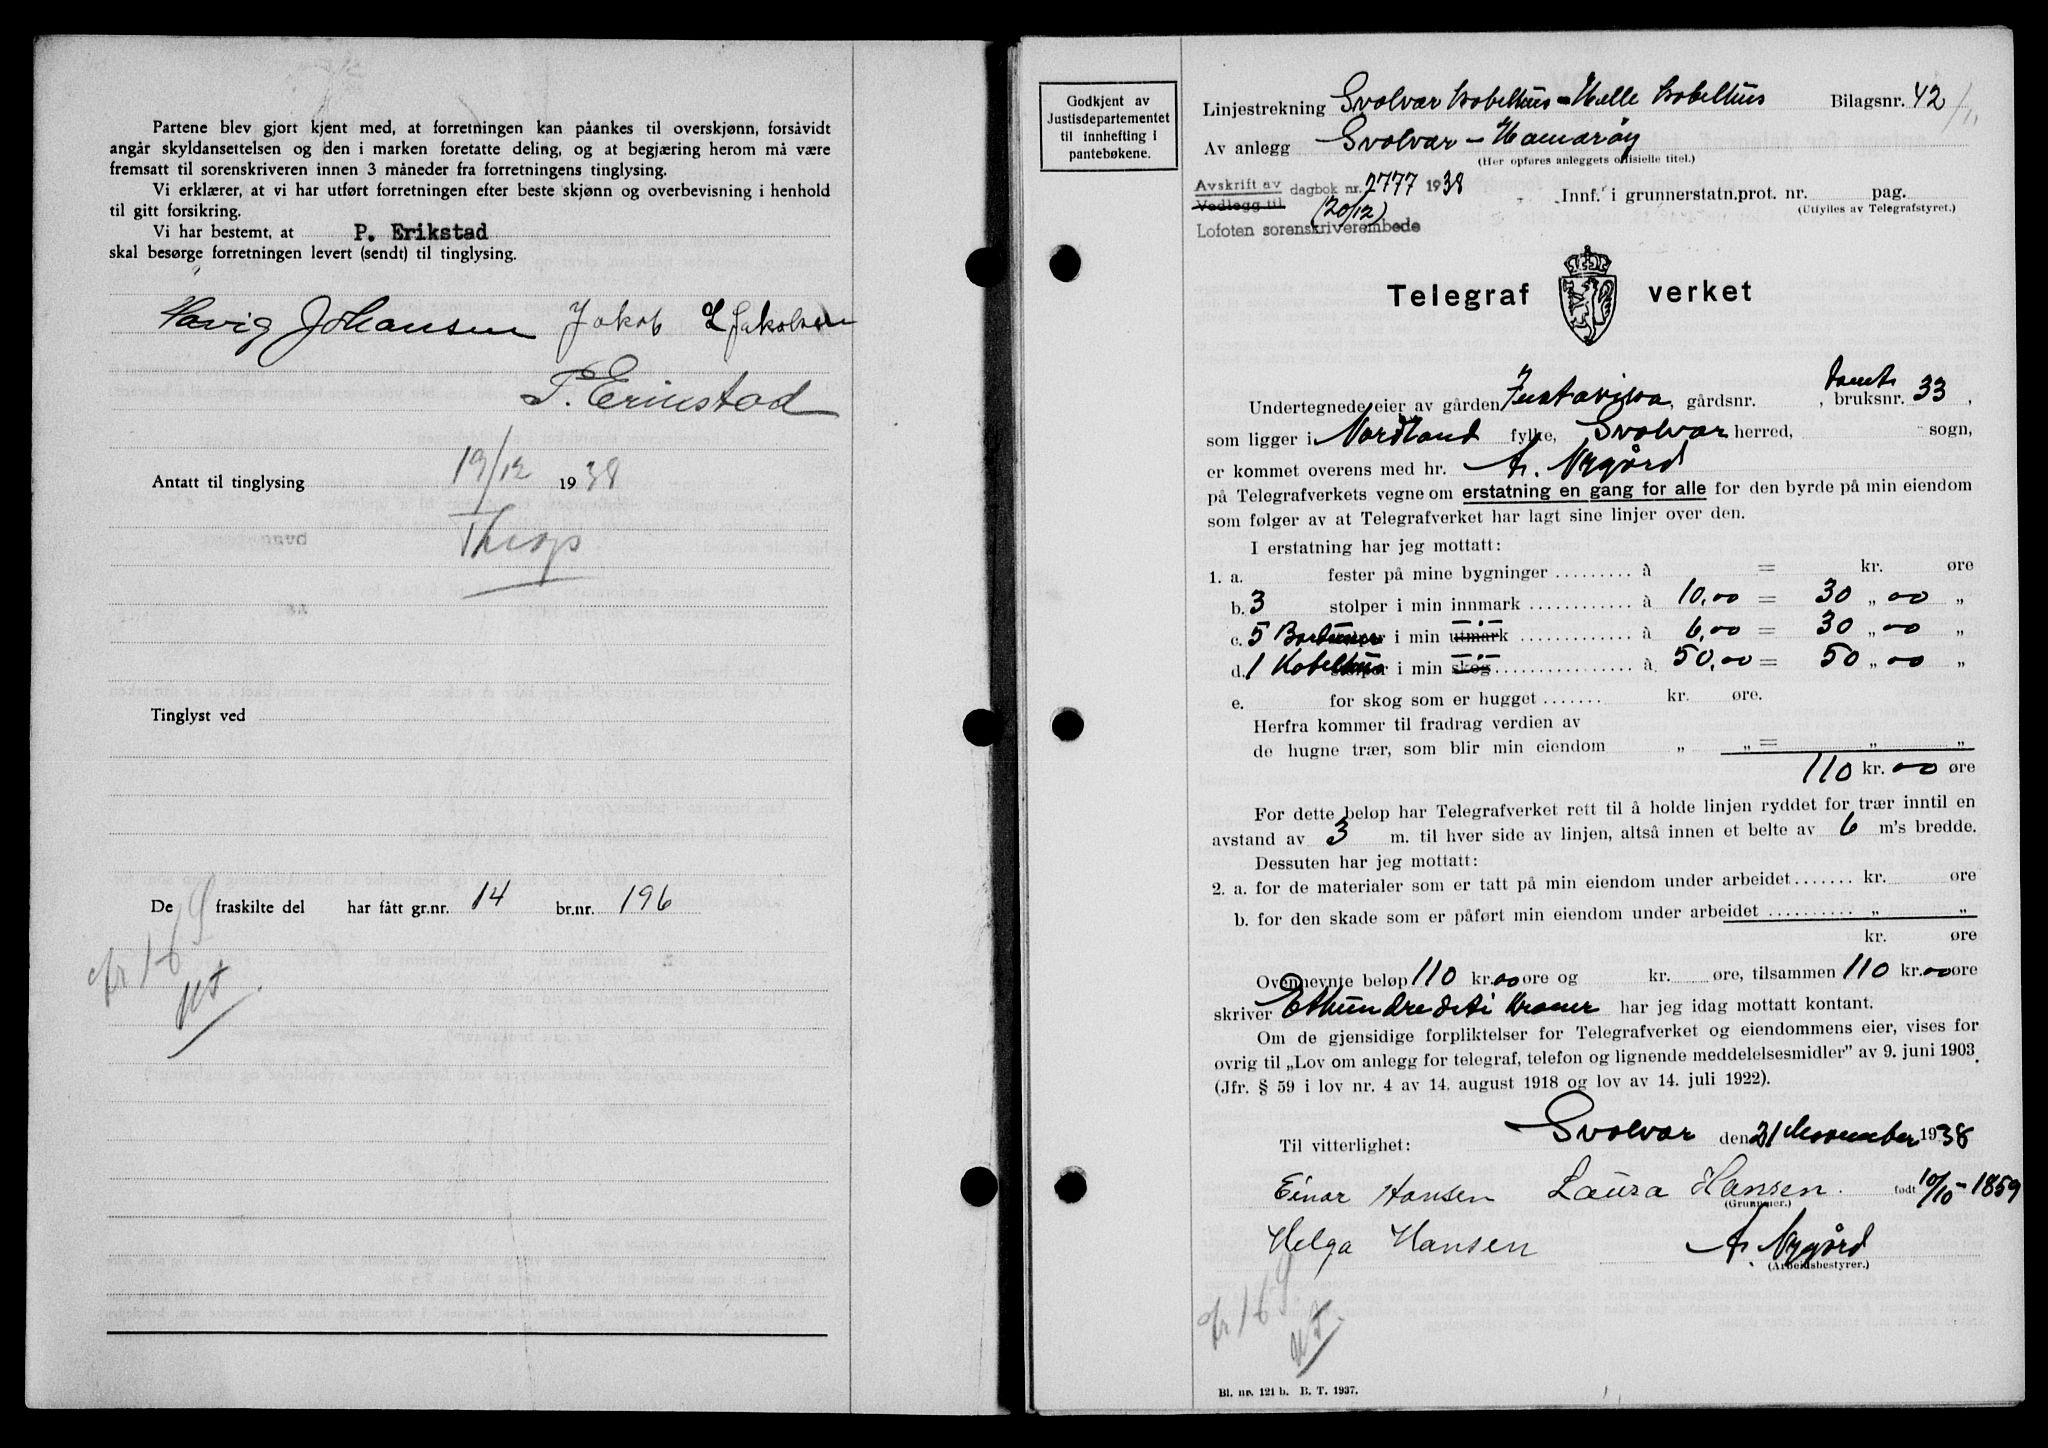 Partene blev gjort kjent med, at forretningen kan påankes til overskjønn, forsåvidt
angår skyldansettelsen og den i marken foretatte deling, og at begjæring herom må være
fremsatt til sorenskriveren innen 3 måneder fra forretningens tinglysing.
Vi erklærer, at vi har utført forretningen efter beste skjønn og overbevisning i henhold
til gitt forsikring.
Vi har bestemt, at P. Erikstad
skal besørge forretningen levert (sendt) til tinglysing.
Johansen Jakob L Jakobsen
P. Erikstad
Antatt til tinglysing 19/12 1938
Tinglyst ved
De fraskilte del har fått gr.nr. 14 br.nr. 196
Godkjent av
Justisdepartementet
til innhefting i
pantebøkene.
Linjestrekning Svolvær kobelhus - Helle kobelhus Bilagsnr. 42
Av anlegg Svolvær - Hamarøy
(Her opføres anleggets offisielle titel.)
Avskrift av
Vedlegg til
dagbok nr. 2777 1938
(20/12)
Lofoten sorenskriverembede
Innf. i grunnerstatn.prot. nr. pag.
(Utfylles av Telegrafstyret.)
Telegrafverket
Undertegnede eier av gården Gustavisva, gårdsnr. , tomt bruksnr. 33,
som ligger i Nordland fylke, Svolvær herred, sogn,
er kommet overens med hr. A. Nygård
på Telegrafverkets vegne om erstatning en gang for alle for den byrde på min eiendom
som følger av at Telegrafverket har lagt sine linjer over den.
I erstatning har jeg mottatt:
1. a. fester på mine bygninger ......... à = kr. øre
b. 3 stolper i min innmark ............ à 10,00 = 30 „ 00 „
c. 5 Barduner i min utmark ............ à 6,00 = 30 „ 00 „
d. 1 Kobelhus stolper i min skog ............ à 50,00 = 50 „ 00 „
e. for skog som er hugget ....... kr. øre.
Herfra kommer til fradrag verdien av
de hugne trær, som blir min eiendom „ „ = „ „
110 kr. 00 øre
For dette beløp har Telegrafverket rett til å holde linjen ryddet for trær inntil en
avstand av 3 m. til hver side av linjen, altså innen et belte av 6 m's bredde.
Dessuten har jeg mottatt:
2. a. for de materialer som er tatt på min eiendom under arbeidet ....... kr. øre
b. for den skade som er påført min eiendom under arbeidet .......... „ „
kr. øre
Ovennevnte beløp 110 kr. 00 øre og kr. øre, tilsammen 110 kr. 00 øre
skriver Ethundredeti kroner har jeg idag mottatt kontant.
Om de gjensidige forpliktelser for Telegrafverket og eiendommens eier, vises for
øvrig til „Lov om anlegg for telegraf, telefon og lignende meddelelsesmidler” av 9. juni 1903
(Jfr. § 59 i lov nr. 4 av 14. august 1918 og lov av 14. juli 1922).
Svolvær den 21 November 1938
Til vitterlighet:
Einar Hansen Laura Hansen. født 10/10-1859
(Grunneier.)
Helga Hansen A. Nygård
(Arbeidsbestyrer.)
Bl. nr. 121 b. B. T. 1937.